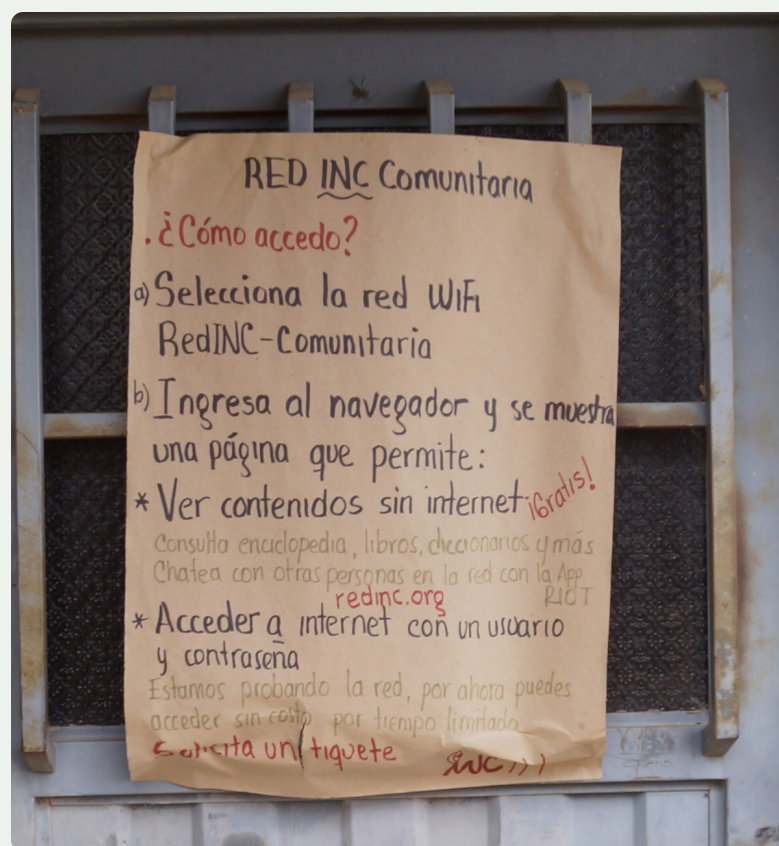 RED INC Comunitaria
. ¿Cómo accedo?
a) Selecciona la red WiFi
RedINC-Comunitaria
b) Ingresa al navegador y se muestra
una página que permite:
* Ver contenidos sin internet ¡Gratis!
Consulta enciclopedia, libros, diccionarios y más
Chatea con otras personas en la red con la App
RIOT
redinc.org
* Acceder a internet con un usuario
y contraseña
Estamos probando la red, por ahora puedes
acceder sin costo por tiempo limitado
Solicita un tiquete
INC)))